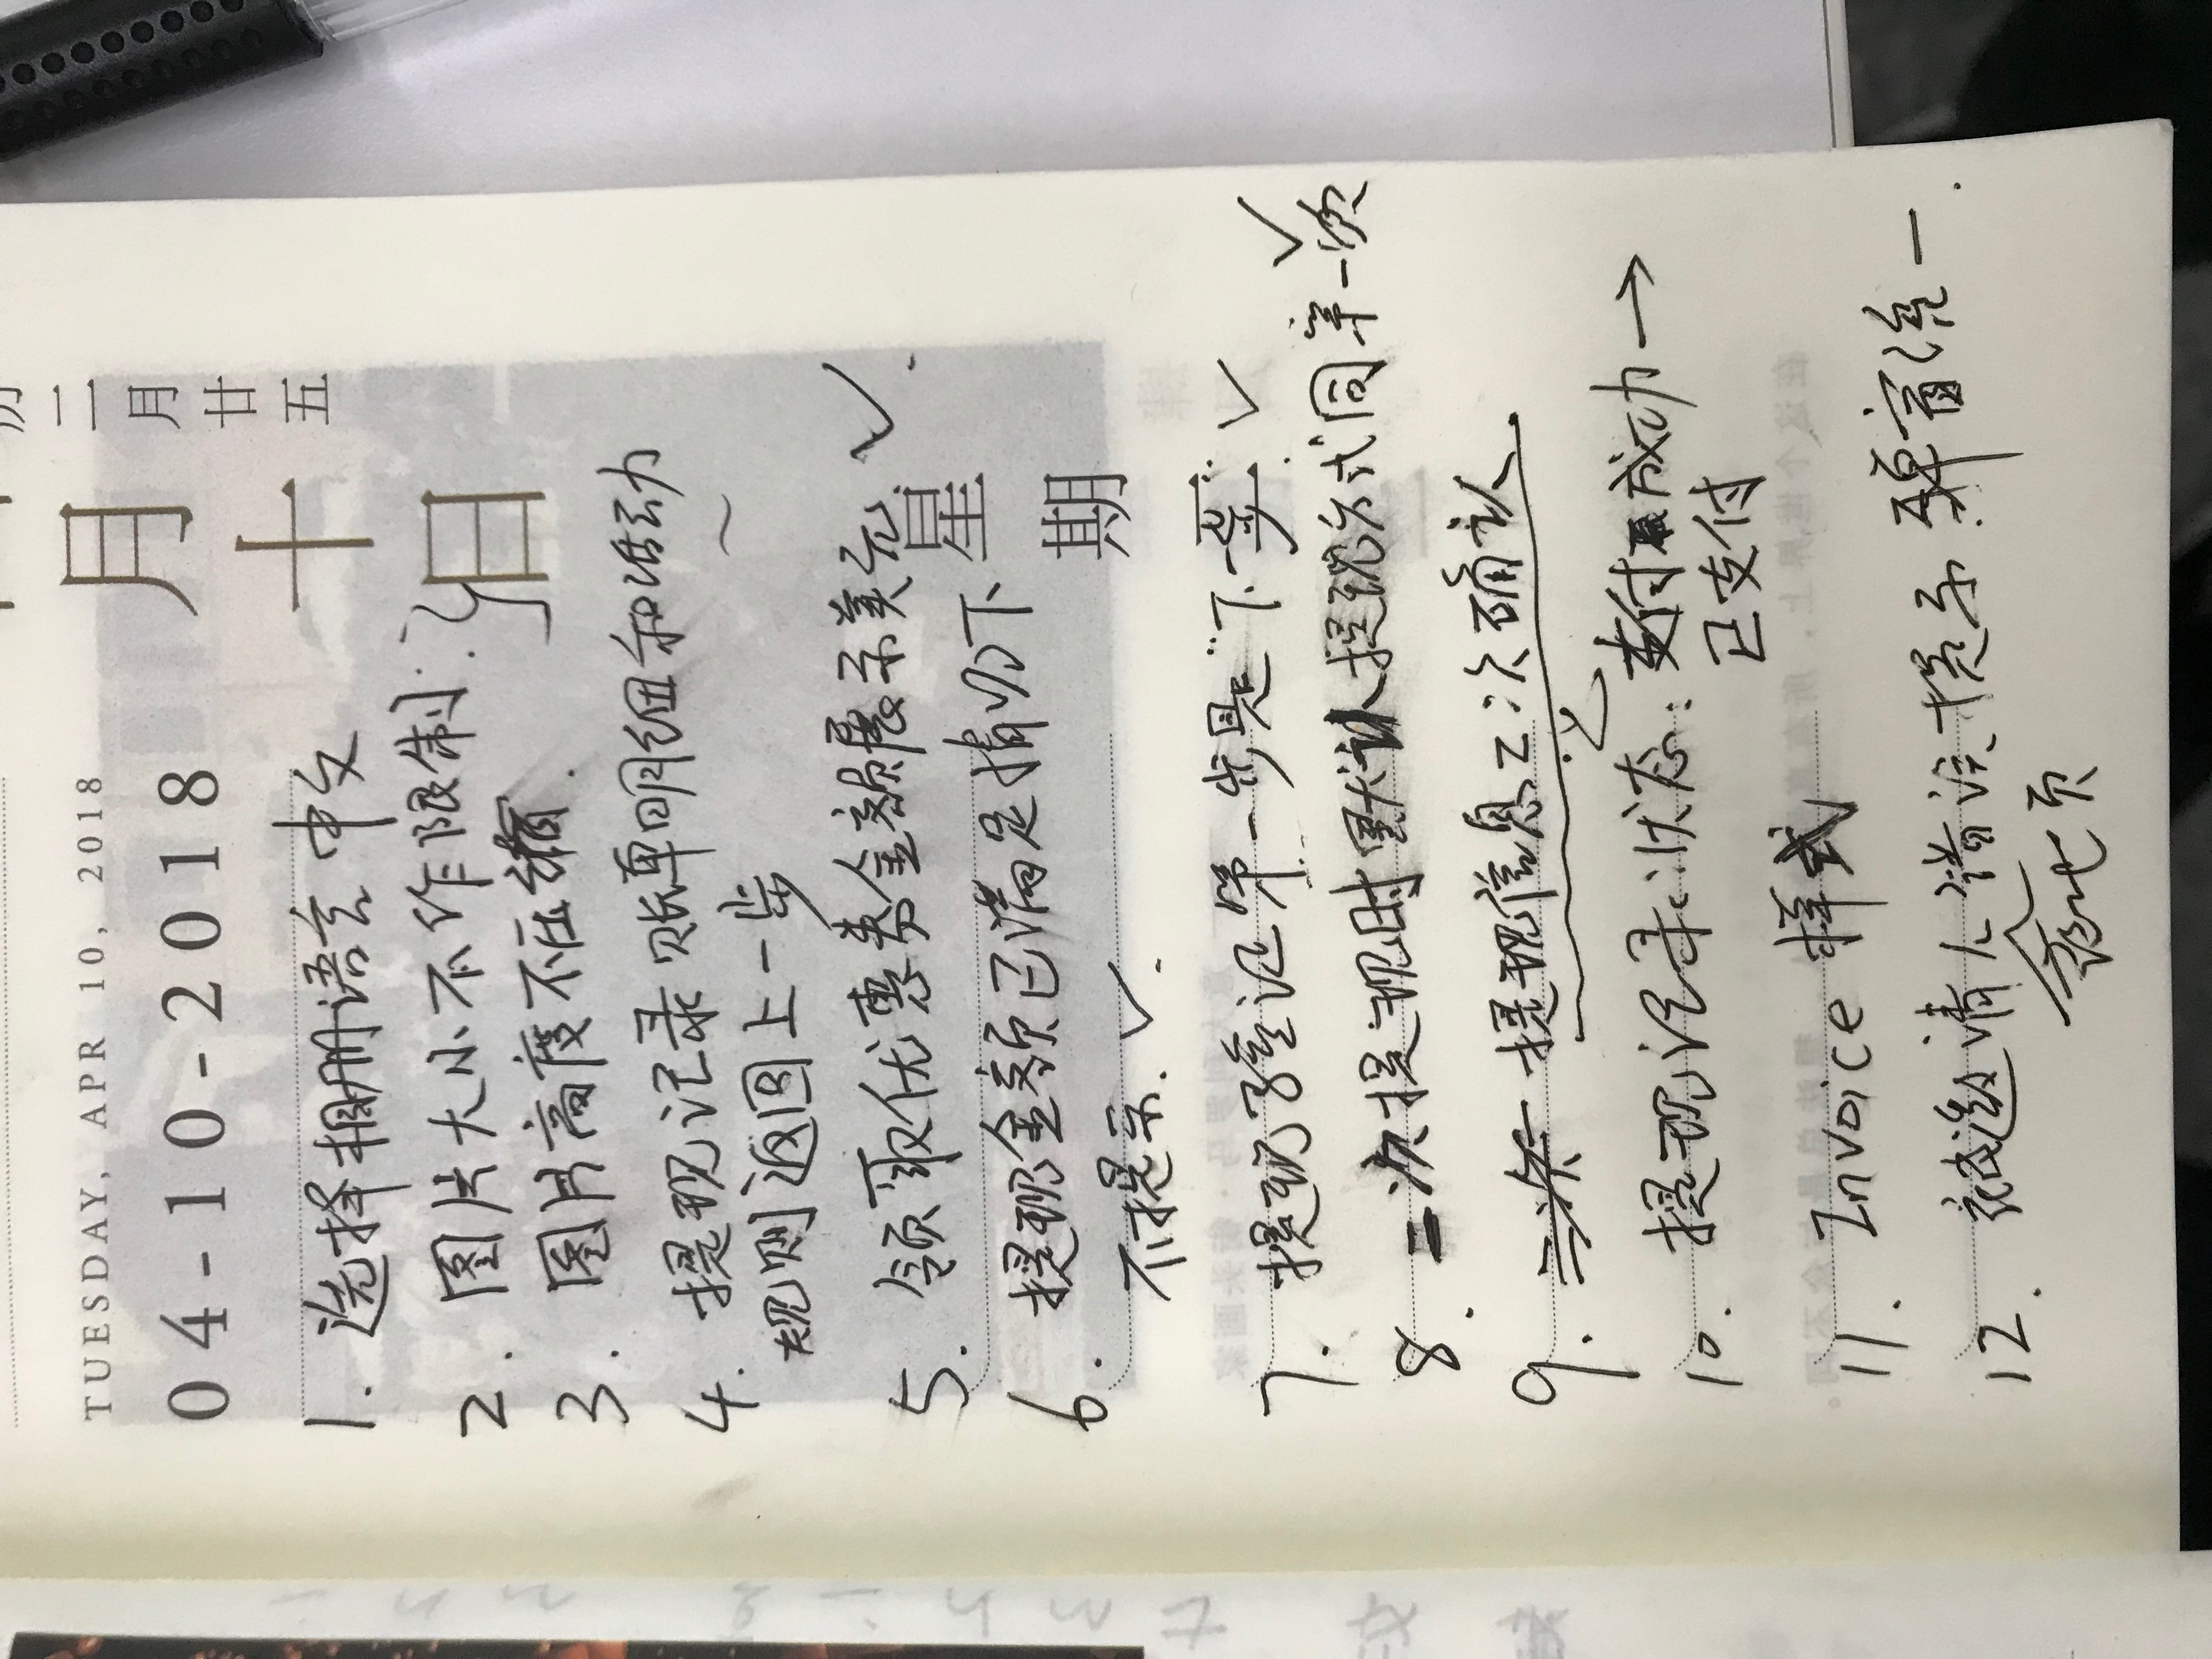 TUESDAY, APR 10, 2018
04-10-2018
月十日
星期二
历二月廿五
1. 选择相册语言中文
2. 图片大小不作限制.
3. 图片高度不压缩.
4. 提现记录账单明细和活动
规则返回上一步
5. 领取优惠券金额展示美元. ✓
6. 提现金额已满足情况下
不提示. ✓
7. 提现验证第一步是"下一步". ✓
8. 二次提现时默认提现方式同第一次 ✓
9. 提现信息二次确认.
10. 提现记录状态: 支付成功→
已支付
11. Invoice 样式
12. 被邀请人错误提示 统一.
落地页